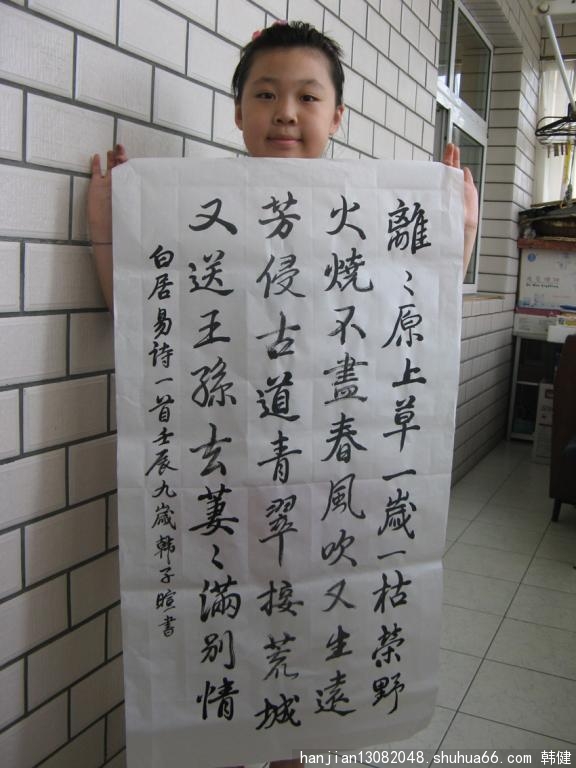 離〻原上草一歲一枯榮野
火燒不盡春風吹又生遠
芳侵古道青翠接荒城
又送王孫去萋〻滿別情
白居易詩一首壬辰九歲韩子暄書
hanjian13082048.shuhua66.com 韩健